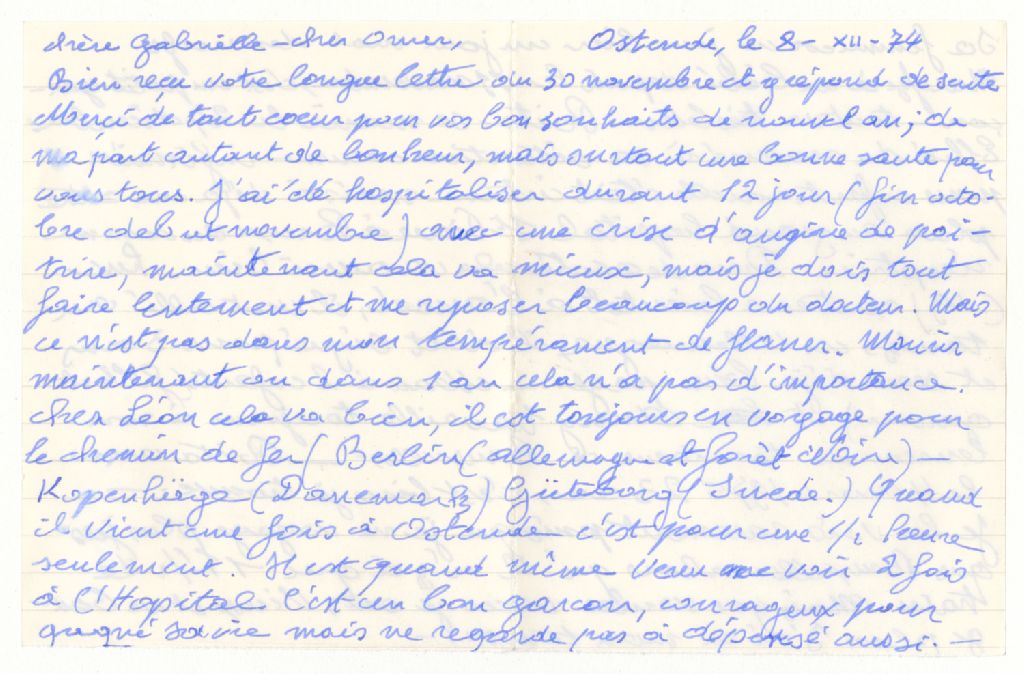 chère Gabrielle - cher Omer, Ostende, le 8 - XII - 74
Bien reçu votre longue lettre du 30 novembre et y répond de suite
Merci de tout coeur pour vos bon souhaits de nouvel an; de
ma part autant de bonheur, mais surtout une bonne sante pour
vous tous. J'ai été hospitaliser durant 12 jour (fin octo-
bre debut novembre) avec une crise d'angine de poi-
trine, maintenant cela va mieux, mais je dois tout
faire lentement et me reposer beaucoup du docteur. Mais
ce n'est pas dans mon tempérament de flaner. Mourir
maintenant ou dans 1 an cela n'a pas d'importance.
chez Léon cela va bien, il est toujours en voyage pour
le chemin de fer (Berlin (allemagne et forèt Noire) —
Kopenhège (Danemark) Güteborg (Suede.) Quand
il vient une fois à Ostende c'est pour une 1/2 heure
seulement. Il est quand même venu me voir 2 fois
à l'Hopital c'est un bon garcon, courageux pour
gagné sa vie mais ne regarde pas à dépensé aussi. —